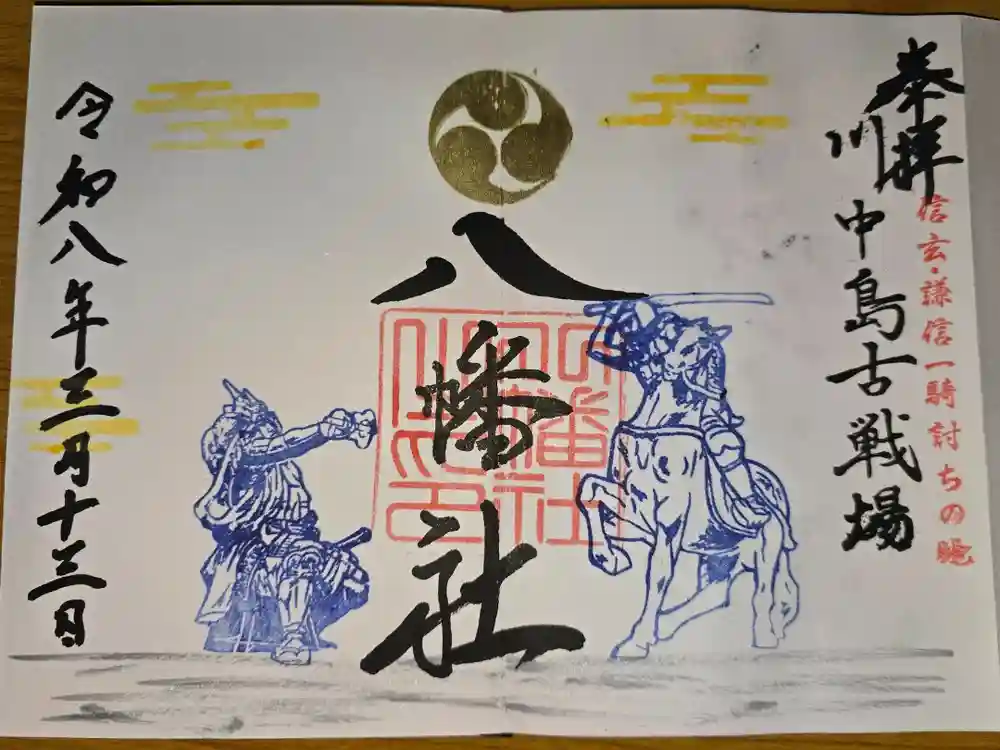 奉拝
川中島古戦場
信玄・謙信一騎討ちの地
八幡社
令和八年三月十三日